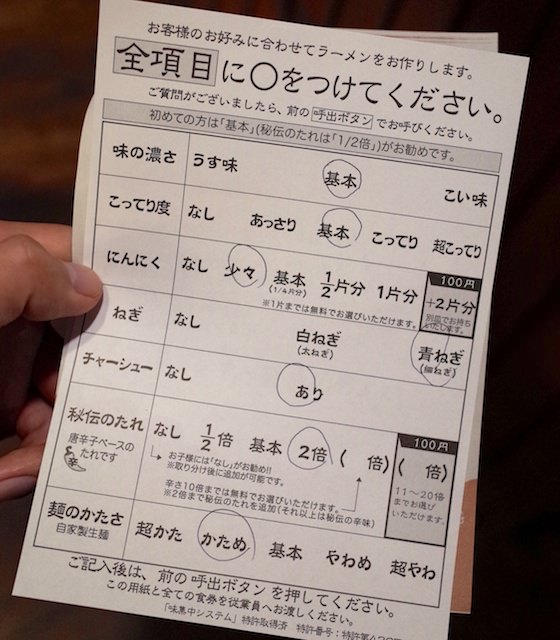 お客様のお好みに合わせてラーメンをお作りします。
全項目に○をつけてください。
ご質問がございましたら、前の呼出ボタンでお呼びください。
初めての方は「基本」(秘伝のたれは「1/2倍」)がお勧めです。
味の濃さ うす味 基本 こい味
こってり度 なし あっさり 基本 こってり 超こってり
にんにく なし 少々 基本 1/2片分 1片分
(1/4片分)
※1片までは無料でお選びいただけます。
100円
+2片分
別皿でお持ち
いたします。
ねぎ なし 白ねぎ 青ねぎ
(太ねぎ) (細ねぎ)
チャーシュー なし あり
秘伝のたれ なし 1/2倍 基本 2倍 ( 倍)
唐辛子ベースの
たれです
辛
お子様には「なし」がお勧め!!
※取り分け後に追加が可能です。
辛さ10倍までは無料でお選びいただけます。
※2倍まで秘伝のたれを追加(それ以上は秘伝の辛味)
100円
( 倍)
11〜20倍
までお選び
いただけます。
麺のかたさ 超かた かため 基本 やわめ 超やわ
自家製生麺
ご記入後は、前の呼出ボタンを押してください。
この用紙と全ての食券を従業員へお渡しください。
「味集中システム」特許取得済 特許番号:特許第4267